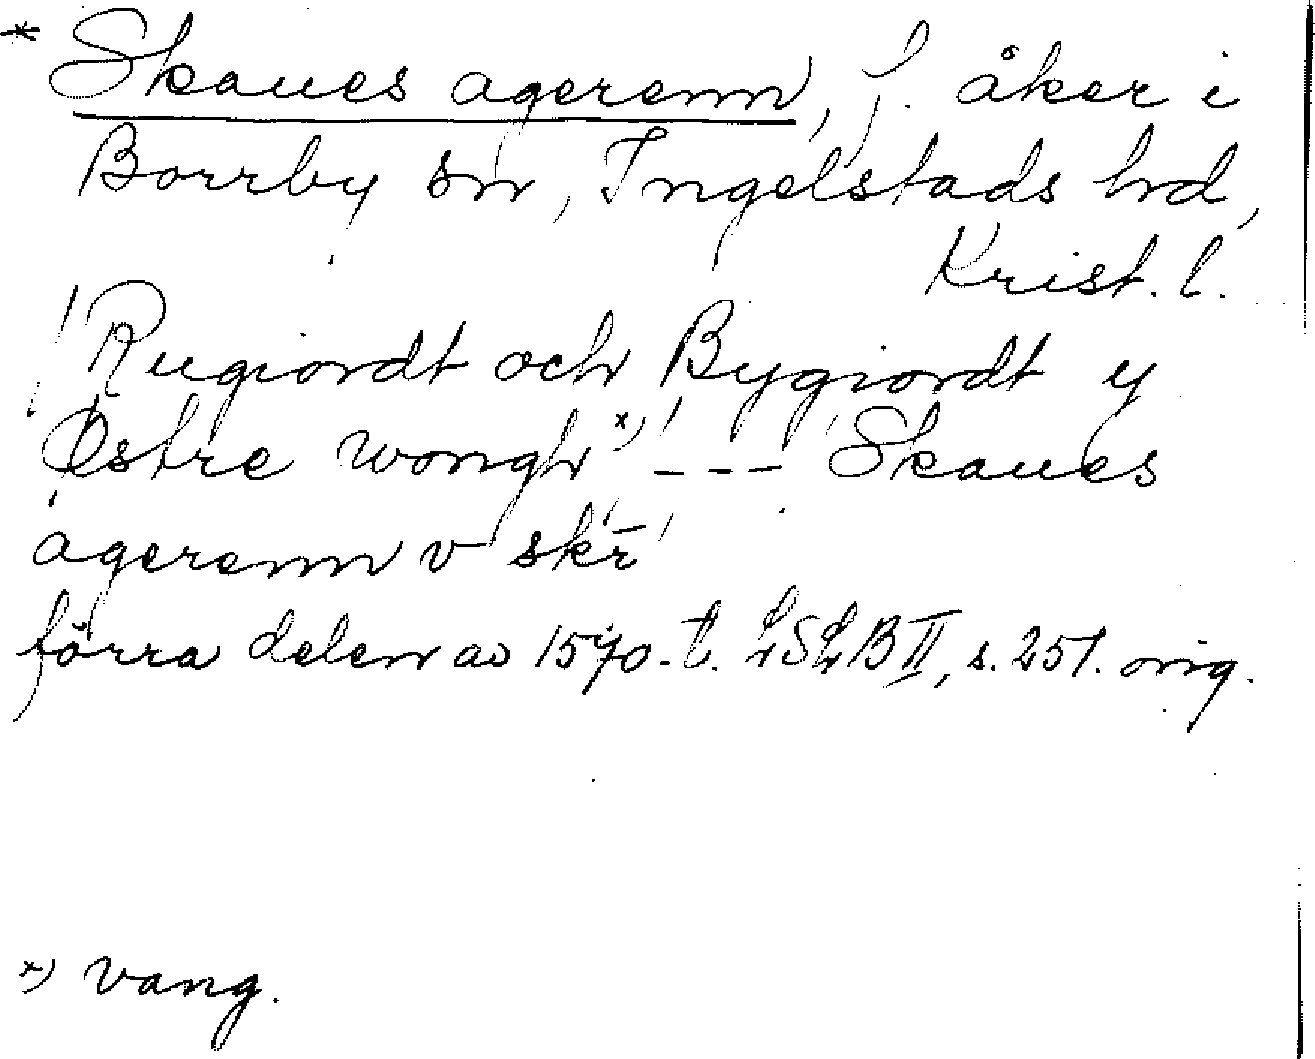 * Skaues agerenn, f. åker i
Borrby sn, Ingelstads hd,
Krist. l.
"Rugiordt och Bygiordt y
Østre wongh x) --- Skaues
agerenn v skr̄"
förra delen av 1570-t. LSLB II, s. 251. orig.
x) vang.